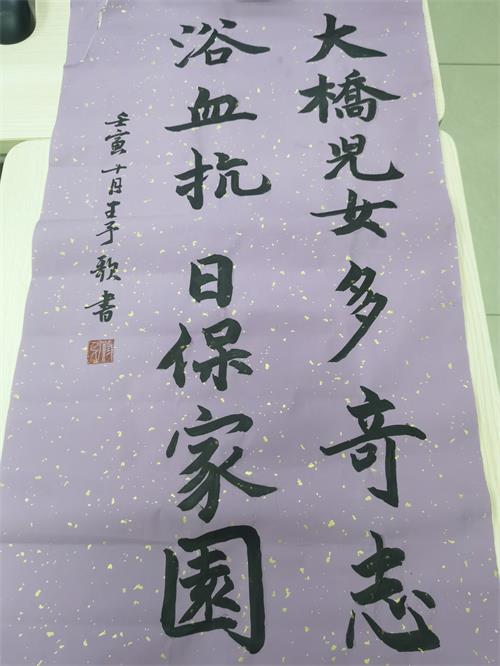 大橋児女多奇志
浴血抗日保家園
壬寅十月王子歌書